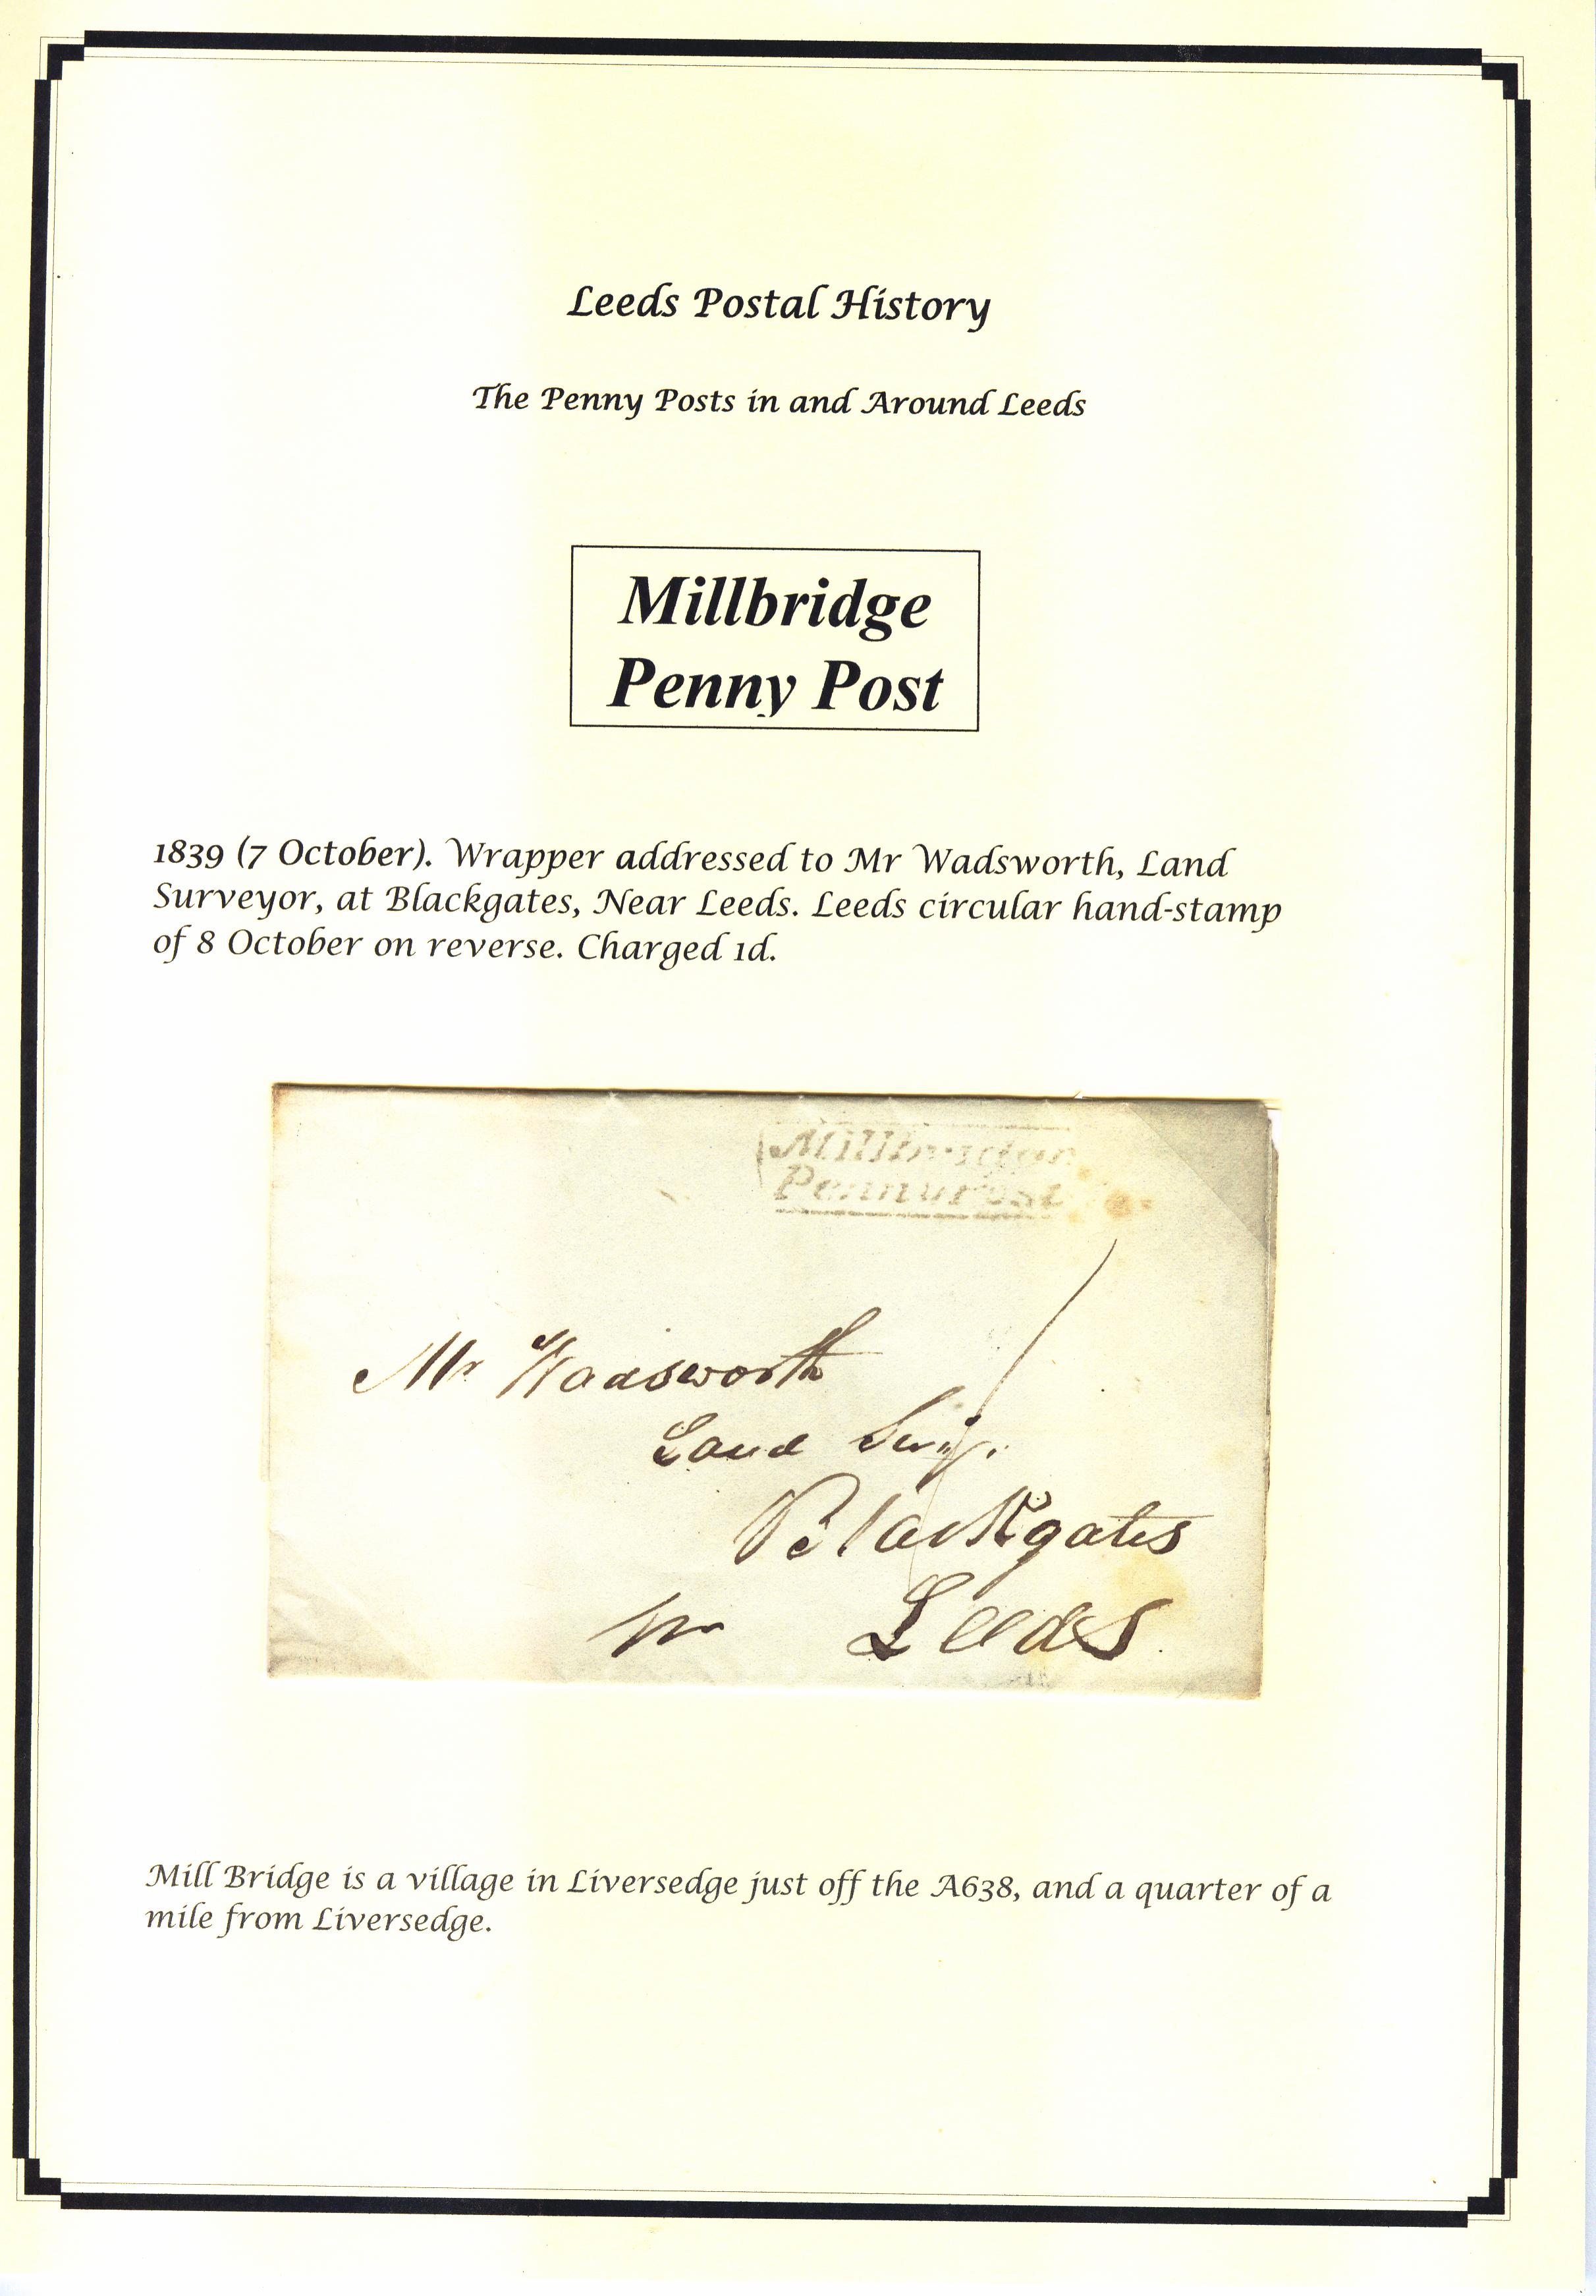 Leeds Postal History
The Penny Posts in and Around Leeds
Millbridge
Penny Post
1839 (7 October). Wrapper addressed to Mr Wadsworth, Land
Surveyor, at Blackgates, Near Leeds. Leeds circular hand-stamp
of 8 October on reverse. Charged 1d.
Millbridge
Penny Post
1
Mr Wadsworth
Land
Blackgates
Nr Leeds
Mill Bridge is a village in Liversedge just off the A638, and a quarter of a
mile from Liversedge.